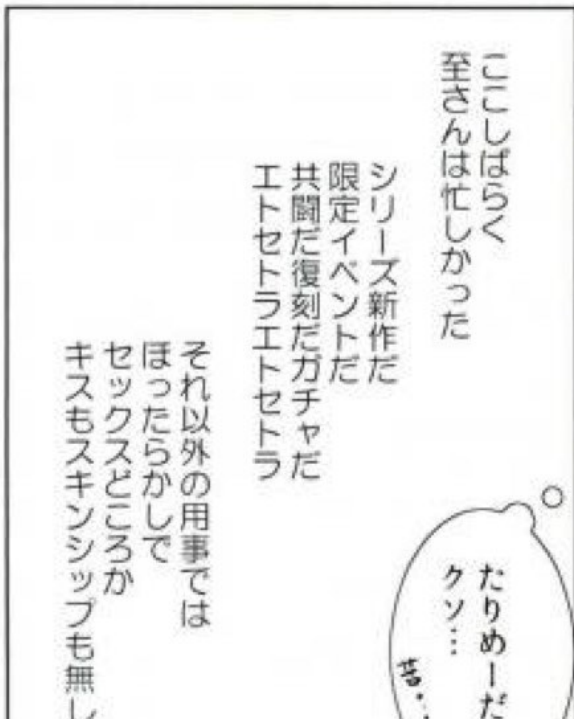 ここしばらく
至さんは忙しかった
シリーズ新作だ
限定イベントだ
共闘だ復刻だガチャだ
エトセトラエトセトラ
それ以外の用事では
ほったらかしで
セックスどころか
キスもスキンシップも無し
たりめーだ
クソ…